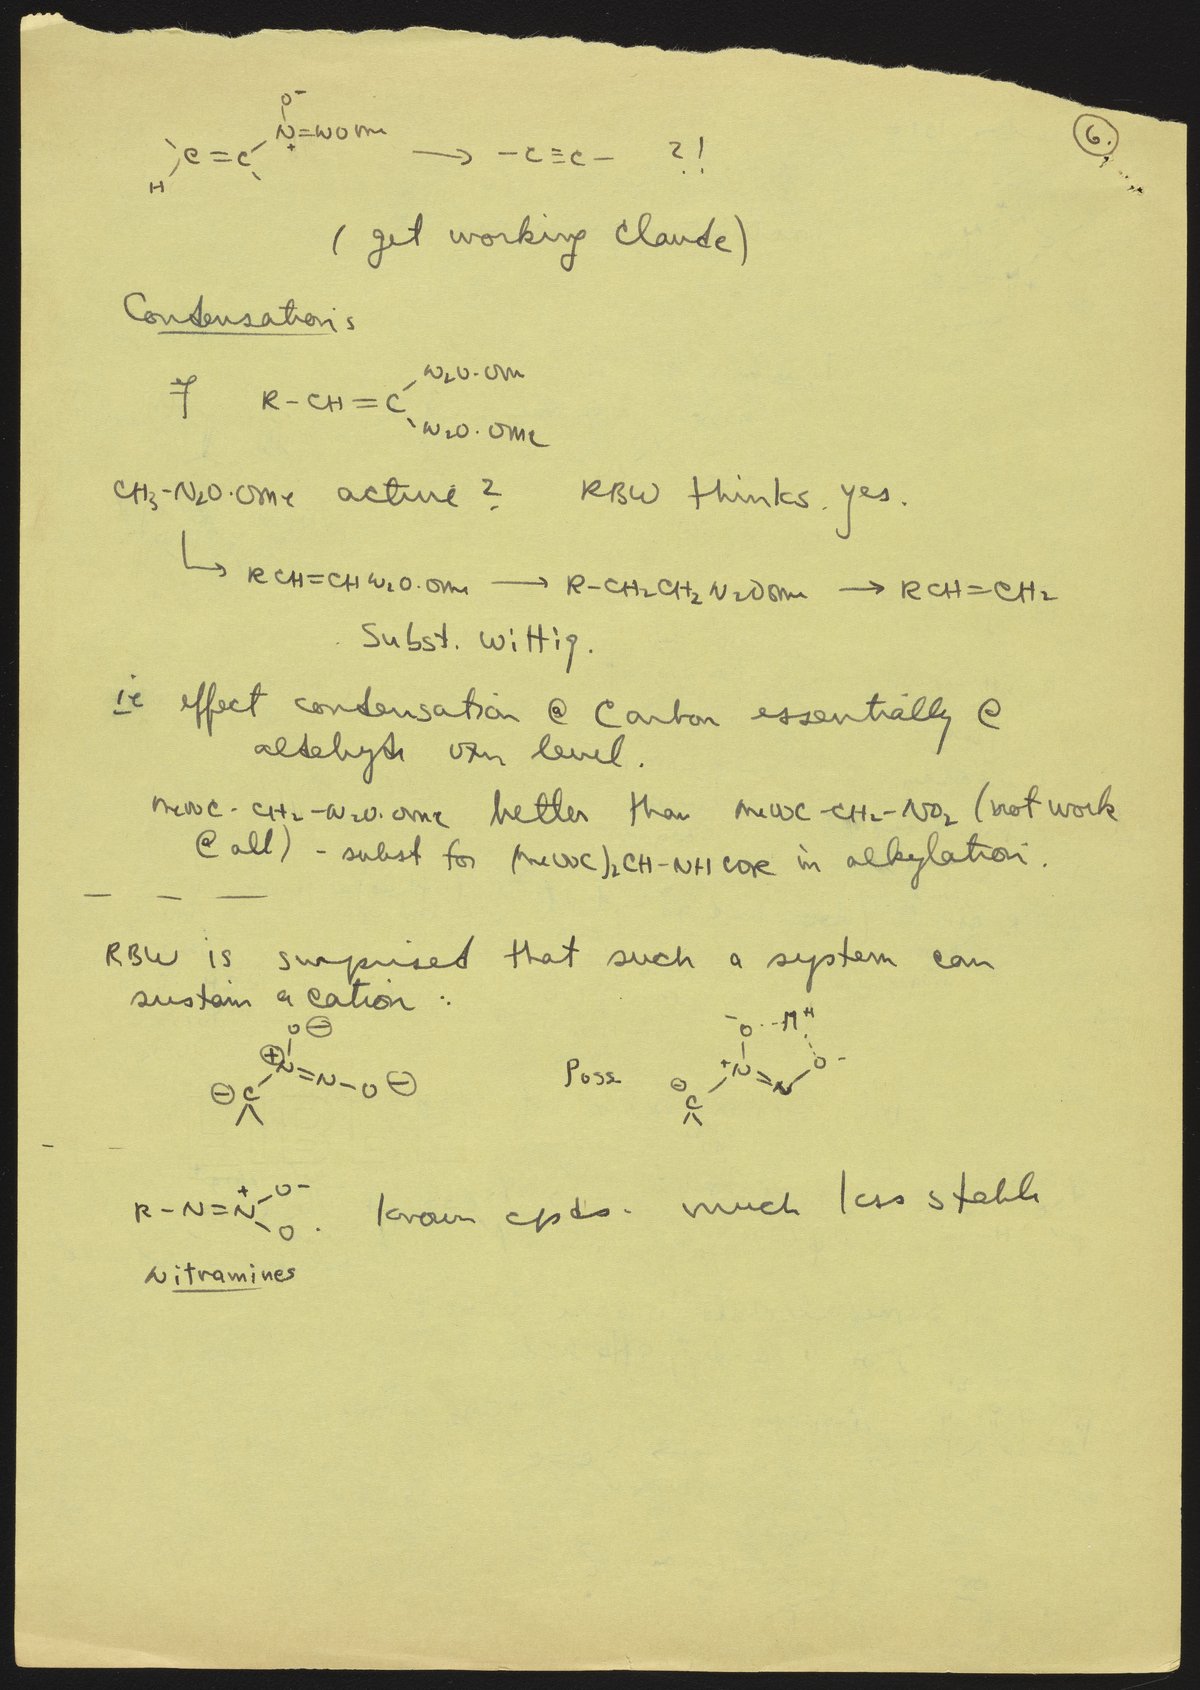 6.
H C=C N=NOMe O⁻ + → -C≡C- ?!
(get working Claude)
Condensations
R-CH=C N₂O·OMe
N₂O·OMe
CH₃-N₂O·OMe active? RBW thinks yes.
↳ RCH=CHN₂O·OMe → R-CH₂CH₂N₂OOMe → RCH=CH₂
Subst. Wittig.
ie effect condensation @ Carbon essentially @
aldehyde oxn level.
MeOOC-CH₂-N₂O·OMe better than MeOOC-CH₂-NO₂ (not work
@ all) - subst for (MeOOC)₂CH-NHCOR in alkylation.
RBW is surprised that such a system can
sustain a cation :
⊖C ⊕N=N-O⊖ O⊖ Poss ⊖C +N=N O⁻ ⁻O--M
R-N=N⁺ O⁻ O. known cpds. much less stable
Nitramines